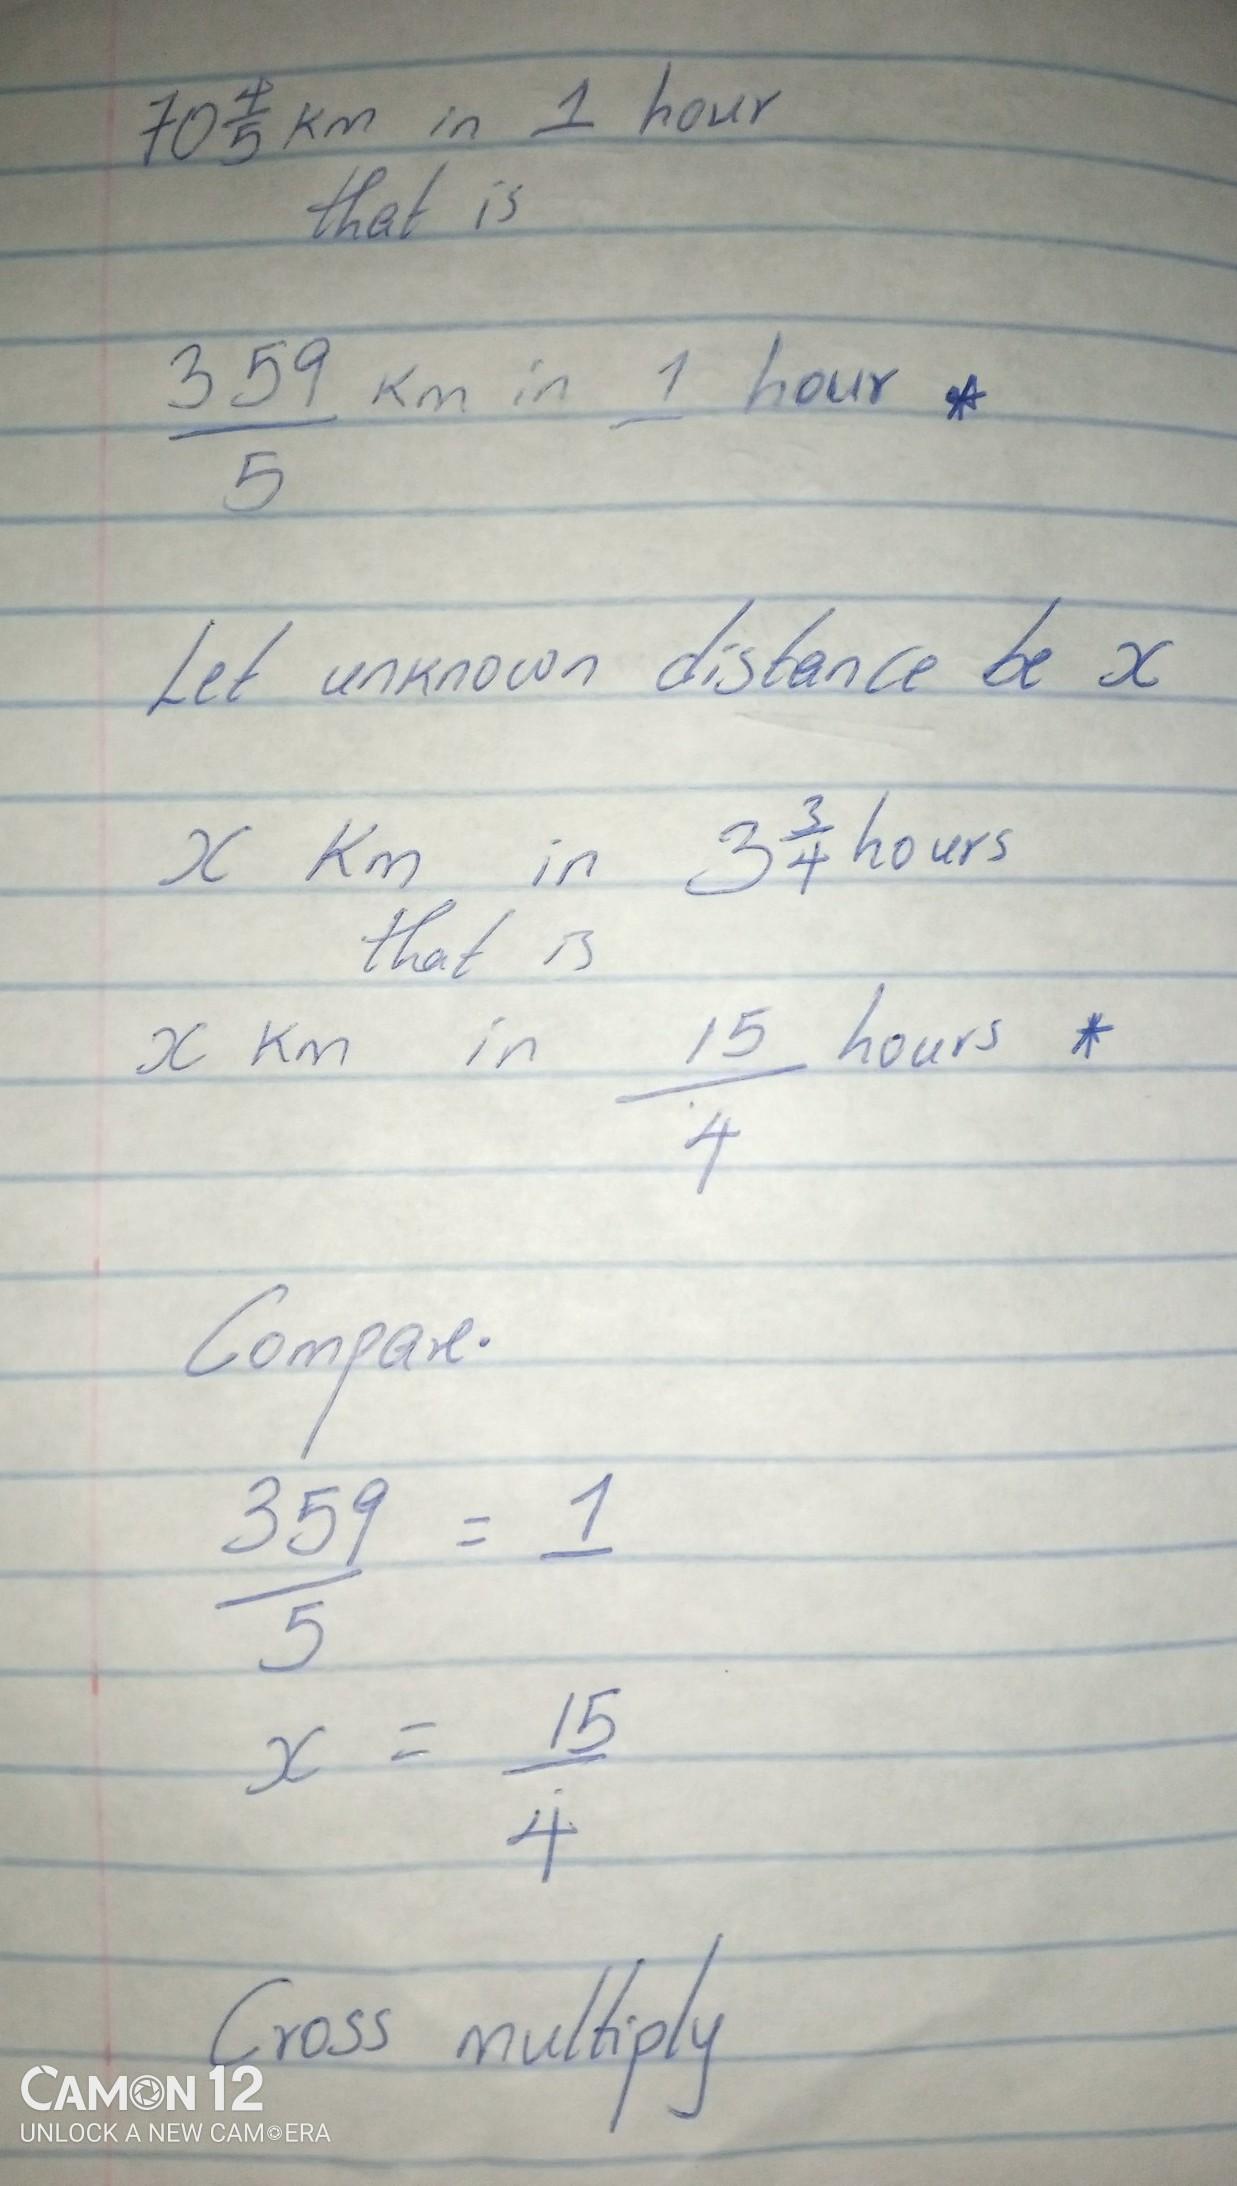 70 4/5 Km in 1 hour
that is
359/5 Km in 1 hour *
Let unknown distance be x
x Km in 3 3/4 hours
that is
x Km in 15/4 hours *
Compare.
359/5 = 1
x = 15/4
Cross multiply
CAMON 12
UNLOCK A NEW CAMERA